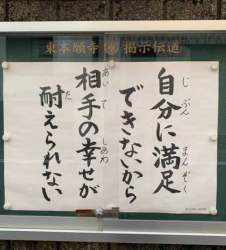 東本願寺 掲示伝道
自分に満足
じぶん まんぞく
できないから
相手の幸せが
あいて しあわ
耐えられない
た